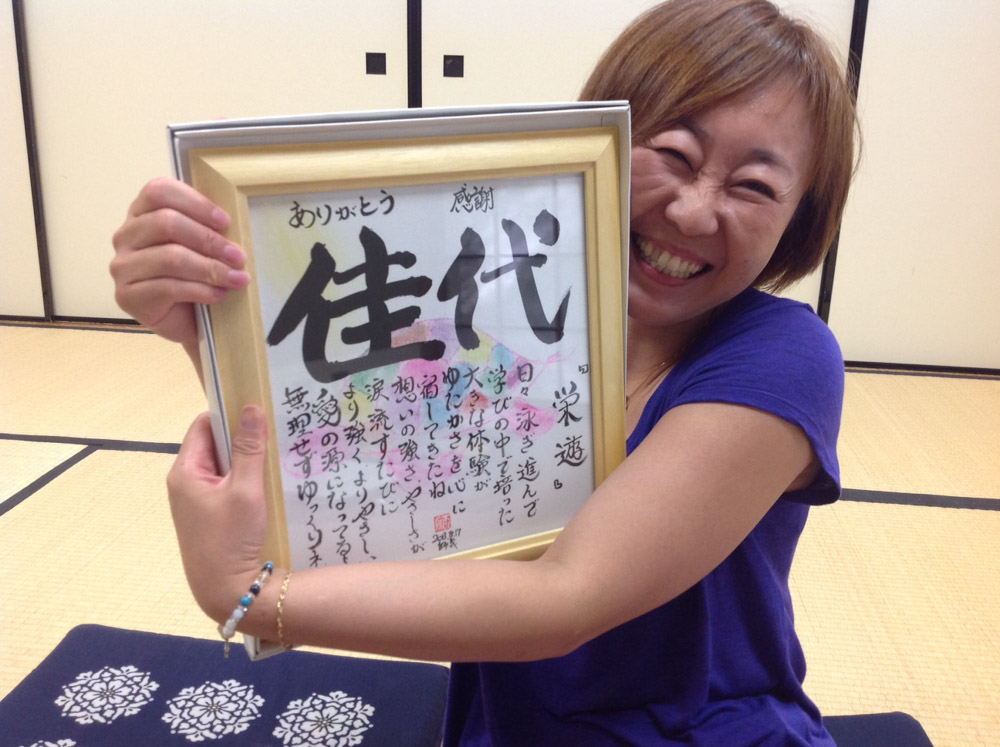 ありがとう 感謝
佳代
「栄遊」
日々泳ぎ進んで
学びの中で培った
大きな体験が
ゆたかさを心に
宿してきたね
想いの強さ、やさしさが
涙流すたびに
より強く、よりやさしい、
愛の源になってる
無理せずゆっくり